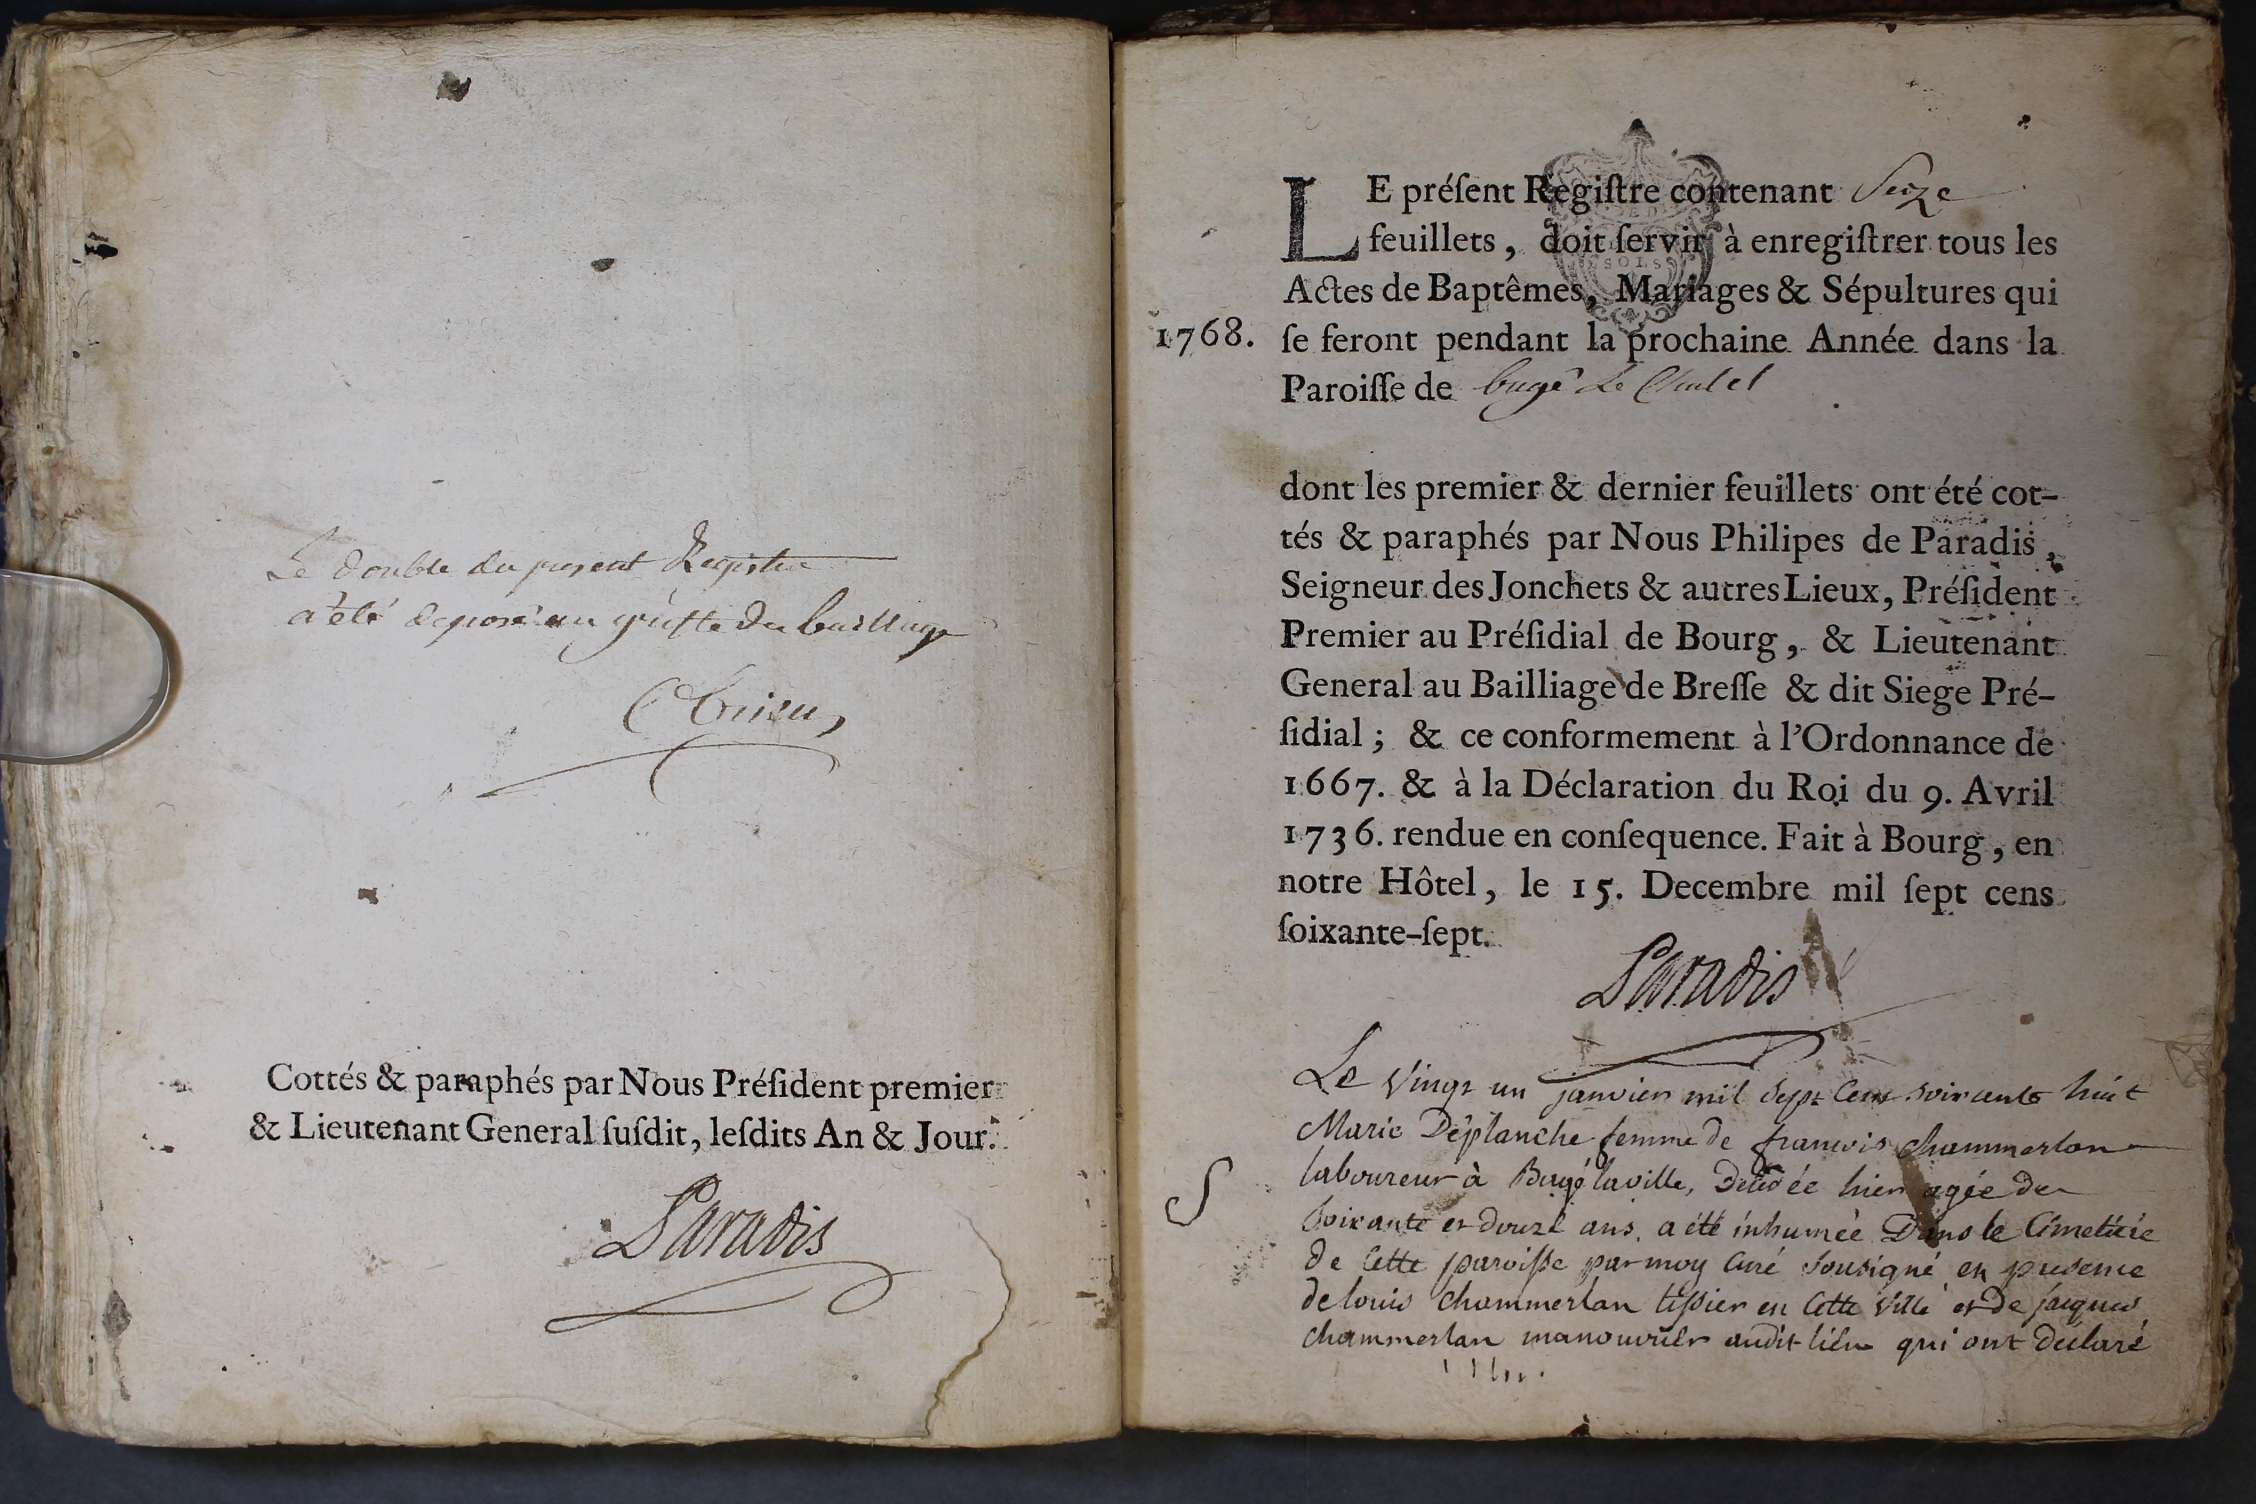 Le double du present Registre
a été deposé au greffe du bailliage
Cottés & paraphés par Nous Préſident premier
& Lieutenant General ſuſdit, leſdits An & Jour.
Paradis
LE préſent Regiſtre contenant Seize
feuillets, doit ſervir à enregiſtrer tous les
Actes de Baptêmes, Mariages & Sépultures qui
1768. ſe feront pendant la prochaine Année dans la
Paroiſſe de bagé Le Chatel
dont les premier & dernier feuillets ont été cot-
tés & paraphés par Nous Philipes de Paradis,
Seigneur des Jonchets & autres Lieux, Préſident
Premier au Préſidial de Bourg, & Lieutenant
General au Bailliage de Breſſe & dit Siege Pré-
ſidial; & ce conformement à l'Ordonnance de
1667. & à la Déclaration du Roi du 9. Avril
1736. rendue en conſequence. Fait à Bourg, en
notre Hôtel, le 15. Decembre mil ſept cens
ſoixante-ſept.
Paradis
Le vingt un janvier mil sept Cent soixante huit
Marie Déplanche femme de francois Chammerlan
S laboureur à Bagé laville, Decedée hier agée de
soixante et douze ans, a été inhumée Dans le Cimetiere
de Cette paroisse par moy Curé sousigné en presence
de louis Chammerlan tissier en Cette ville et de jacques
Chammerlan manouvrier audit lieu qui ont declaré